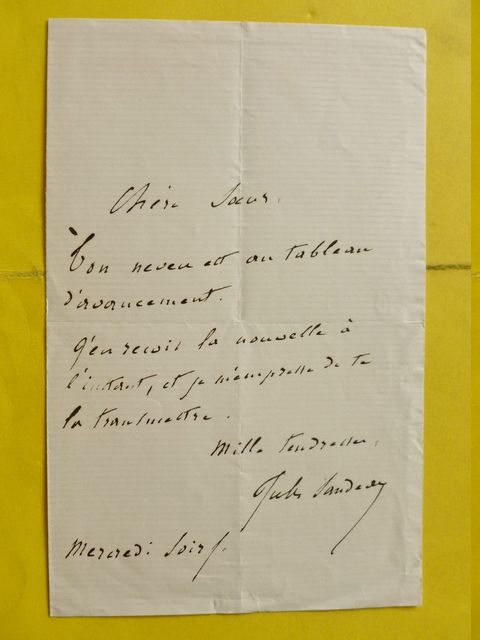 Chère Soeur,
Ton neveu est au tableau
d'avancement.
J'en reçois la nouvelle à
l'instant, et je m'empresse de te
la transmettre.
Mille tendresses,
Jules Sandeau
Mercredi Soir.